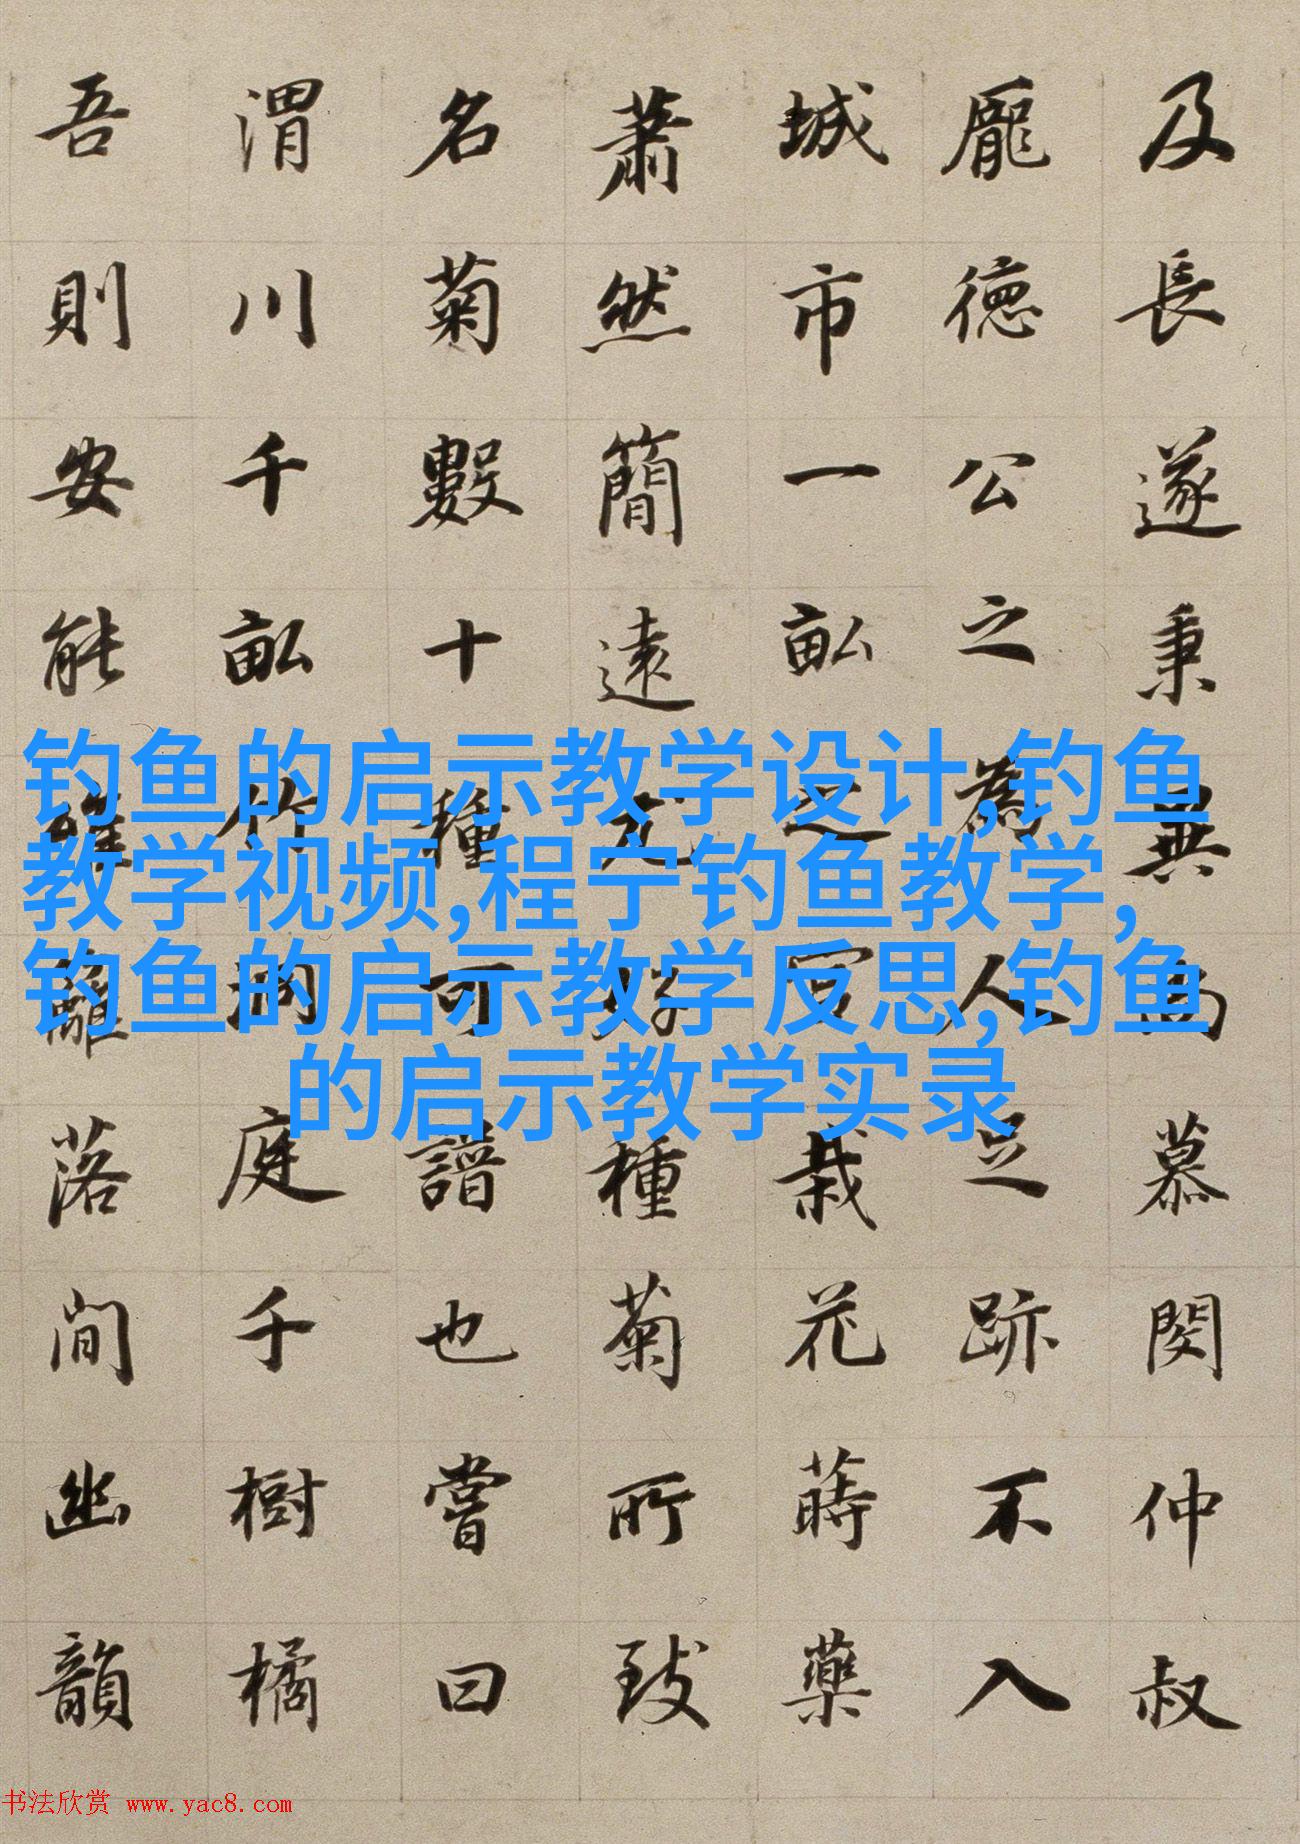 及長遂秉異尚慕閔仲叔
龐德公之為人足跡不入
城市一畝之宮栽花蒔藥
蕭然簡遠尤好種菊所致
名菊數十種可譜也嘗曰
渭川千畝竹洞庭千樹橘
吾則安能籬落間幽韻
钓鱼的启示教学设计,钓鱼
教学视频,程宁钓鱼教学,
钓鱼的启示教学反思,钓鱼
的启示教学实录
书法欣赏 www.yac8.com